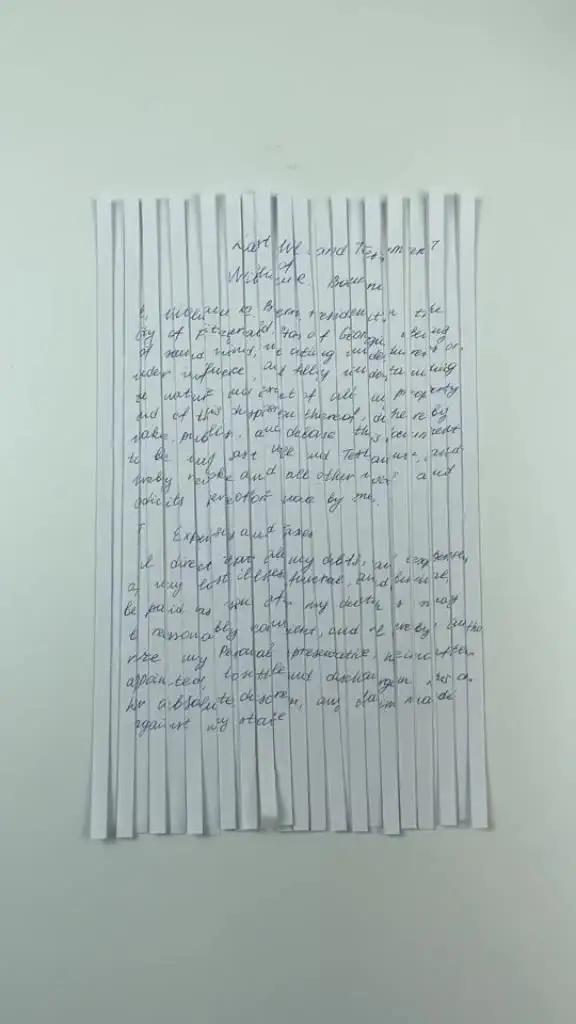 Last Will and Testament
of
Brown
I, resident in the
City of Fitzgerald, of Georgia, being
of sound mind, not acting under duress or
under influence, and fully understanding
the nature and extent of all my property
and of this disposition thereof, do hereby
make, publish, and declare this document
to be my Last Will and Testament, and
hereby revoke and all other wills and
codicils heretofore made by me.
I Expenses and Taxes
I direct that all my debts, and expenses,
of my last illness, funeral, and burial,
be paid as soon after my death as may
be reasonably convenient, and I hereby autho
rize my Personal Representative, hereinafter
appointed, to settle and discharge, in his or
her absolute discretion, any claims made
against my estate